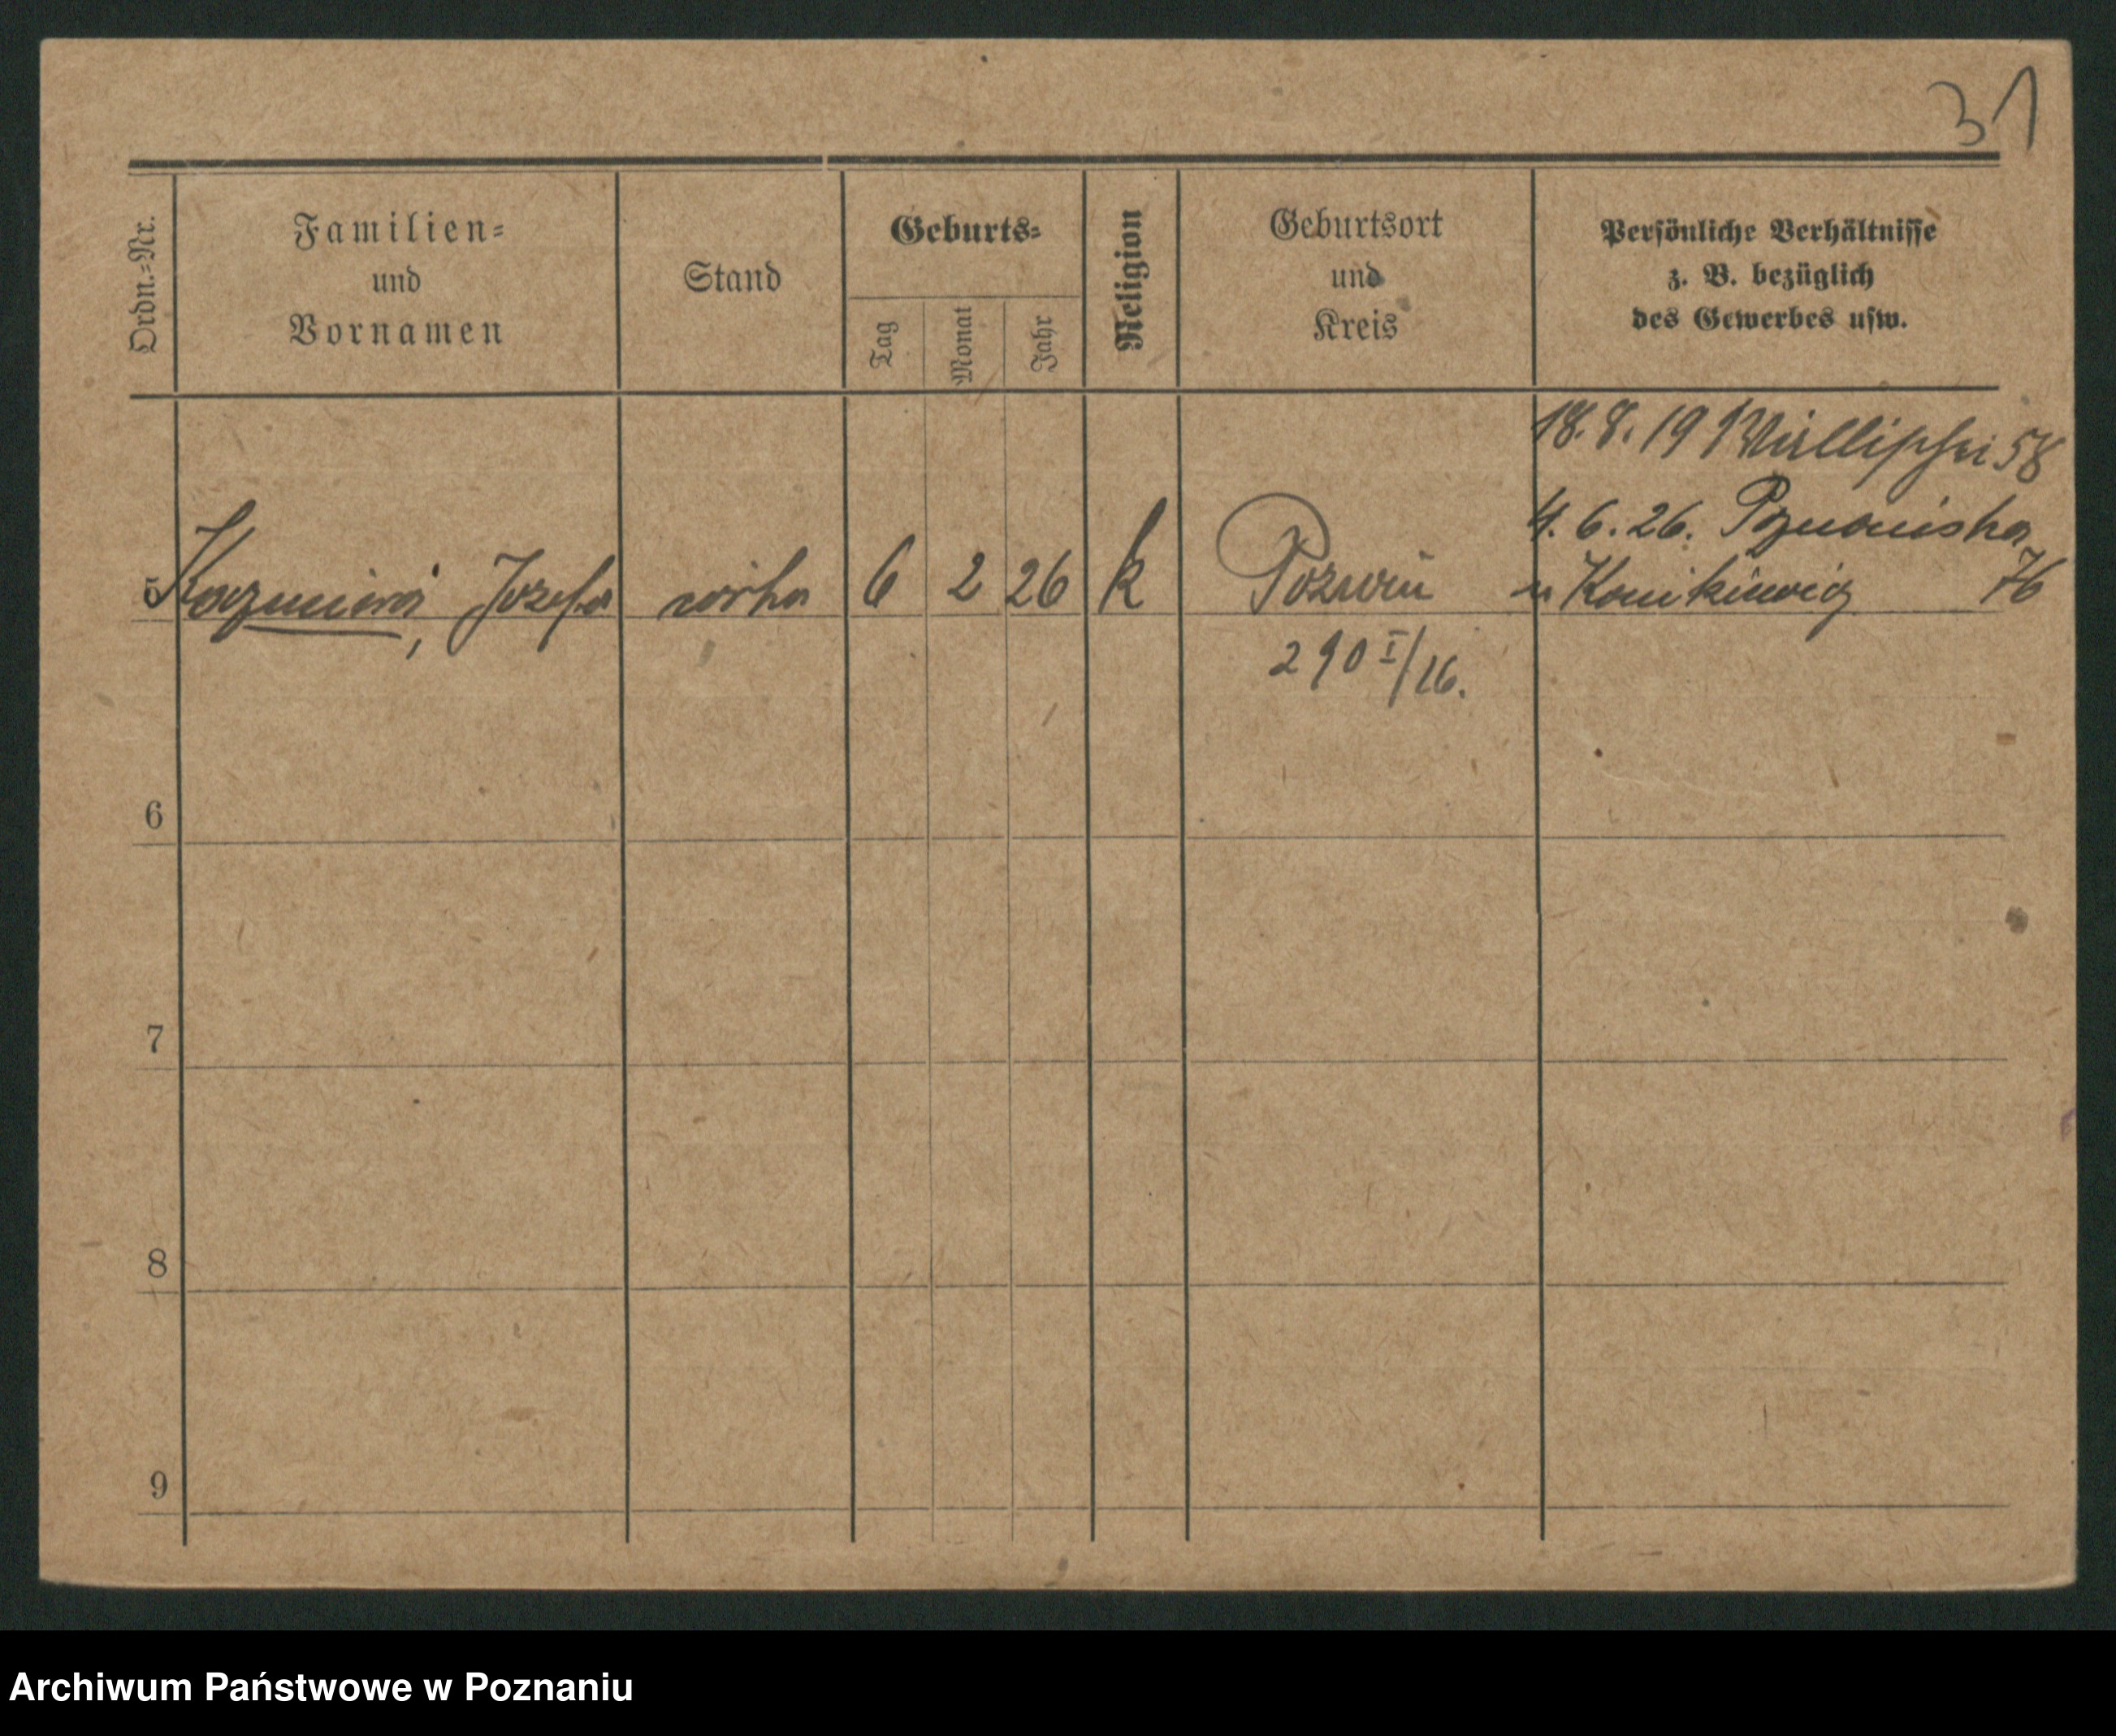 31
Ordn.-Nr.
Familien-
und
Vornamen
Stand
Geburts-
Tag
Monat
Jahr
Religion
Geburtsort
und
Kreis
Persönliche Verhältnisse
z. B. bezüglich
des Gewerbes usw.
18. 8. 19 58
4. 6. 26. Poznańska
5 Józefa córka 6 2 26 k Poznań u 76
290 I/26.
6
7
8
9
Archiwum Państwowe w Poznaniu